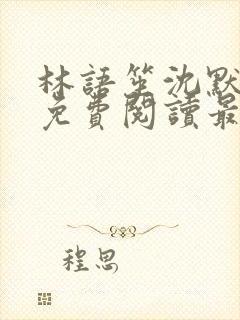 林語笙沈默
免費閱讀最
程思